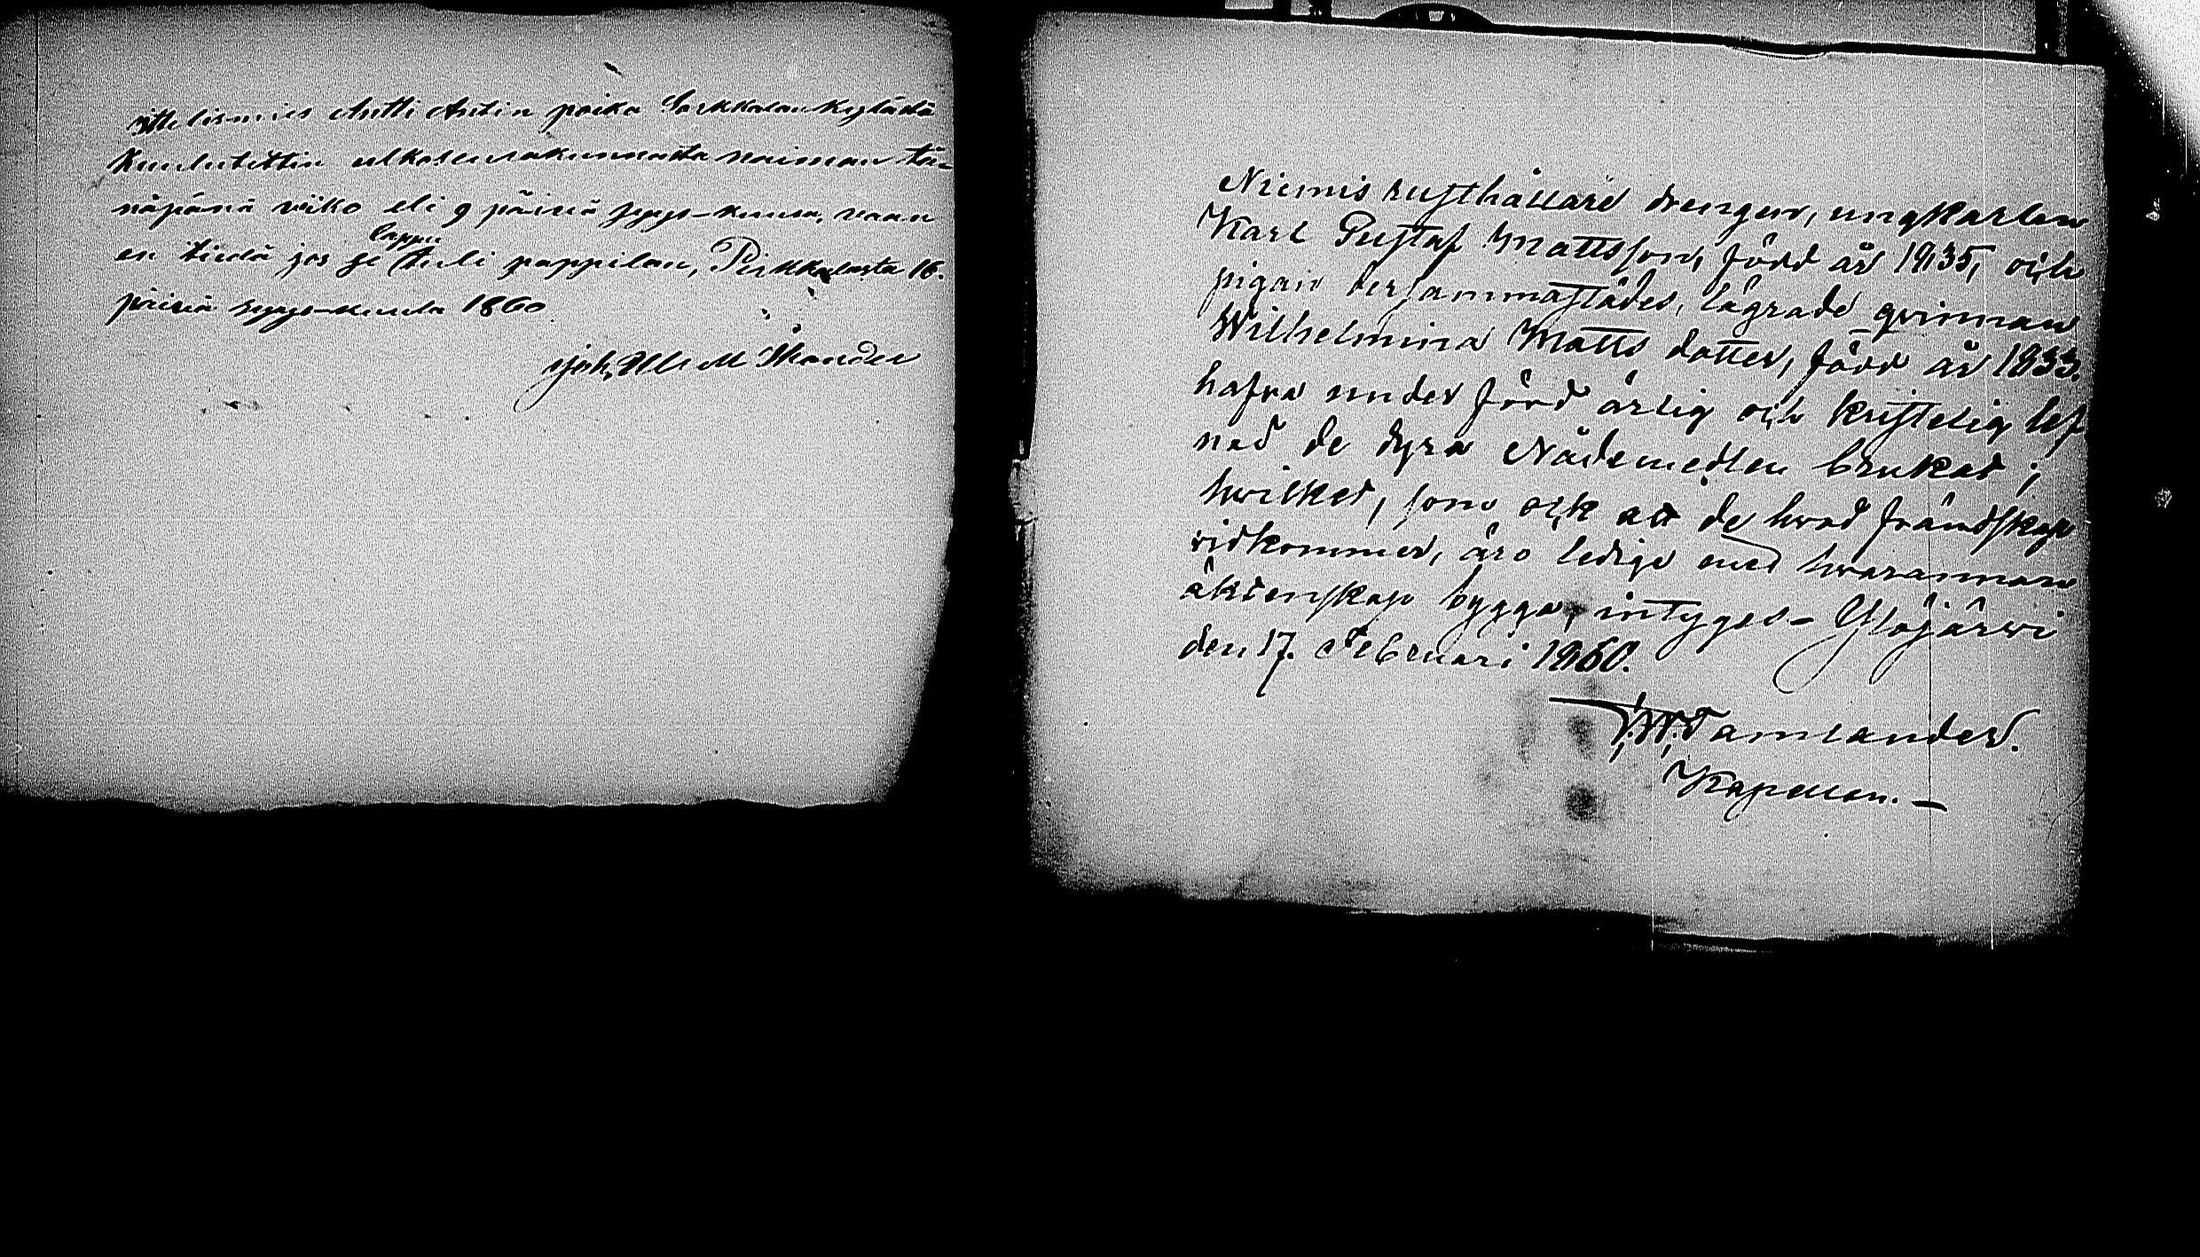 ittelismies Antti Antin poika Sorkkalan kylästä
kuulutettin ulkoseurakunnasta naiman tä-
näpänä viiko eli 9 päivä syys-kuusa, vaan
en tiedä jos se lappu tuli pappilan, Pirkkalasta 16.
päivä syys-kuuta 1860
Joh, Skander
Niemis rusthållare drengen, ungkarlen
Karl Gustaf Mattsson, född år 1835, och
pigan dersammastädes, lägrade qvinnan
Wilhelmina Matts dotter, född år 1833.
hafva under förd ärlig och kristelig lef
nad de dyra Nådemedlen brukat;
hvilket, som ock att de hvad frändskap
vidkommer, äro ledige med hvarannan
äktenskap bygga, intyges - Ylöjärvi
den 17. Februari 1860.
F.W. Tamlander.
Kapellan. -